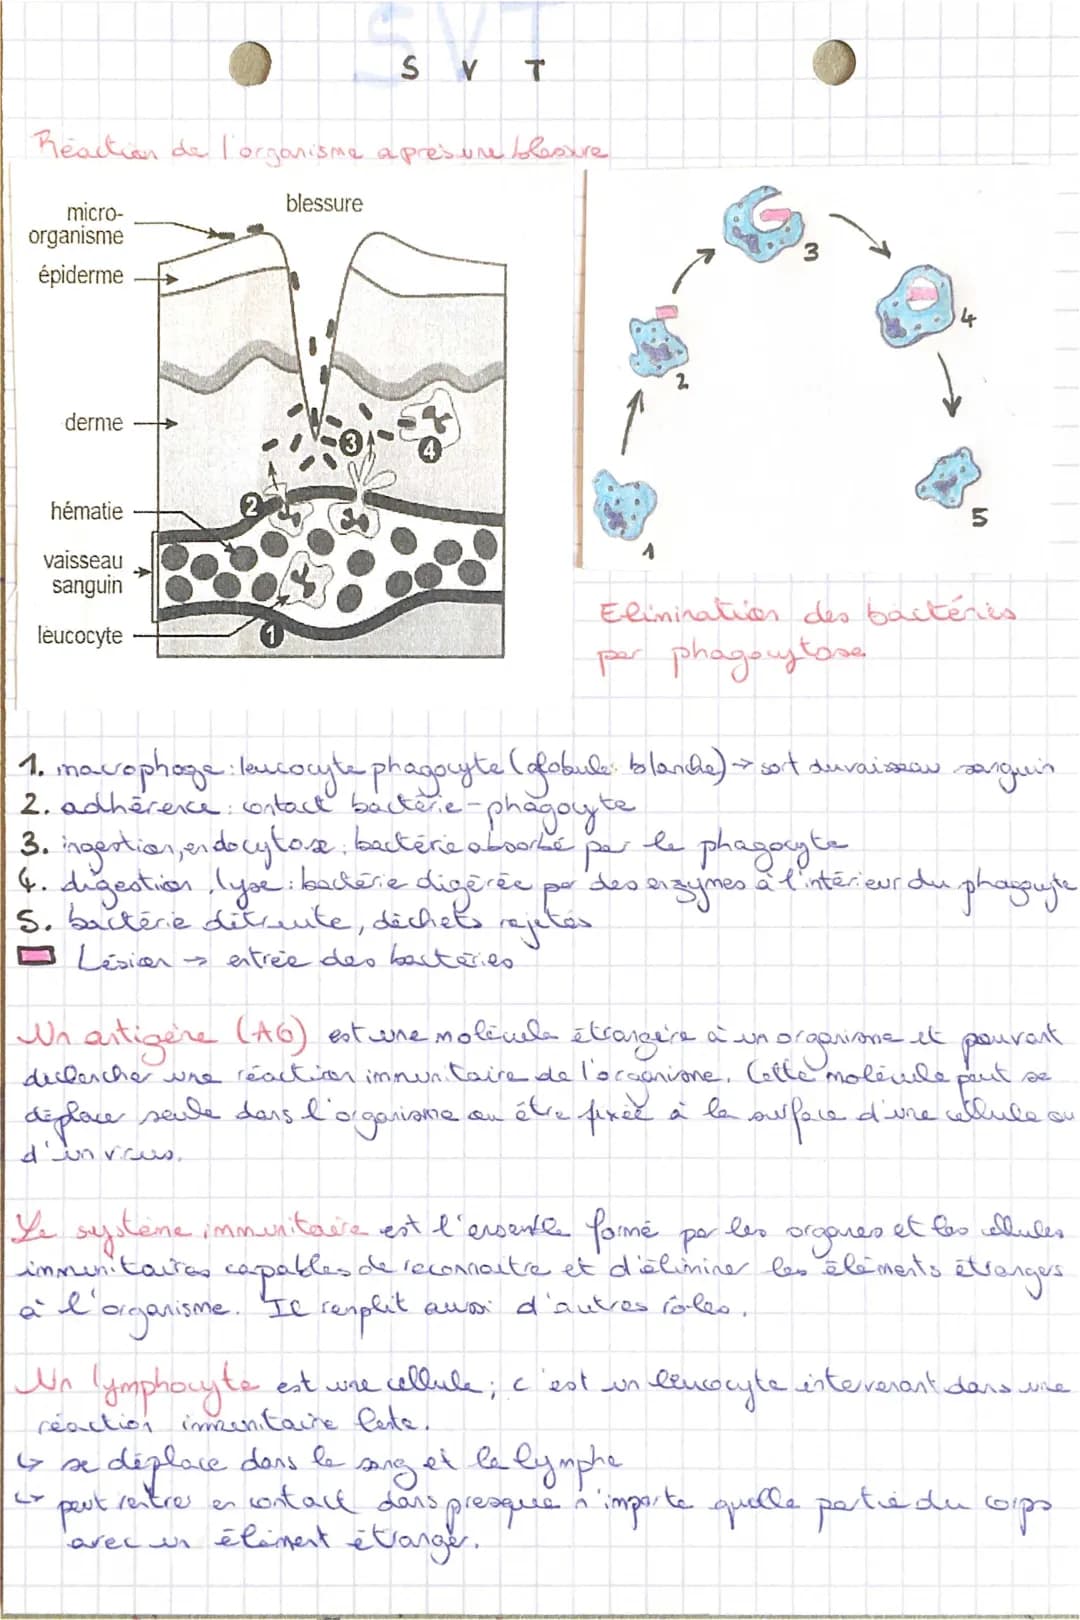 SVT
S V T
Réaction de l'organisme après une blessure
blessure
micro-
organisme
épiderme
derme
hématie
vaisseau
sanguin
leucocyte
1
2
3
4
1
2
3
4
5
Elimination des bactéries
par phagocytose
1. macrophage : leucocyte phagocyte (globule blanche) → sort du vaisseau sanguin
2. adhérence : contact bactérie-phagocyte
3. ingestion, endocytose : bactérie absorbé par le phagocyte
4. digestion, lyse : bactérie digérée par des enzymes à l'intérieur du phagocyte
5. bactérie détruite, déchets rejetés
Lésion → entrée des bactéries
Un antigène (AG) est une molécule étrangère à un organisme et pouvant
déclencher une réaction immunitaire de l'organisme. Cette molécule peut se
déplacer seule dans l'organisme ou être fixée à la surface d'une cellule ou
d'un virus.
Le système immunitaire est l'ensemble formé par les organes et les cellules
immunitaires capables de reconnaitre et d'éliminer les éléments étrangers
à l'organisme. Il remplit aussi d'autres rôles.
Un lymphocyte est une cellule ; c'est un leucocyte intervenant dans une
réaction immunitaire lente.
↳ se déplace dans le sang et la lymphe
↳ peut rentrer en contact dans presque n'importe quelle partie du corps
avec un élément étranger.